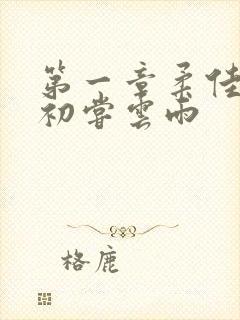 第一章柔佳
初尝雲雨
格鹿